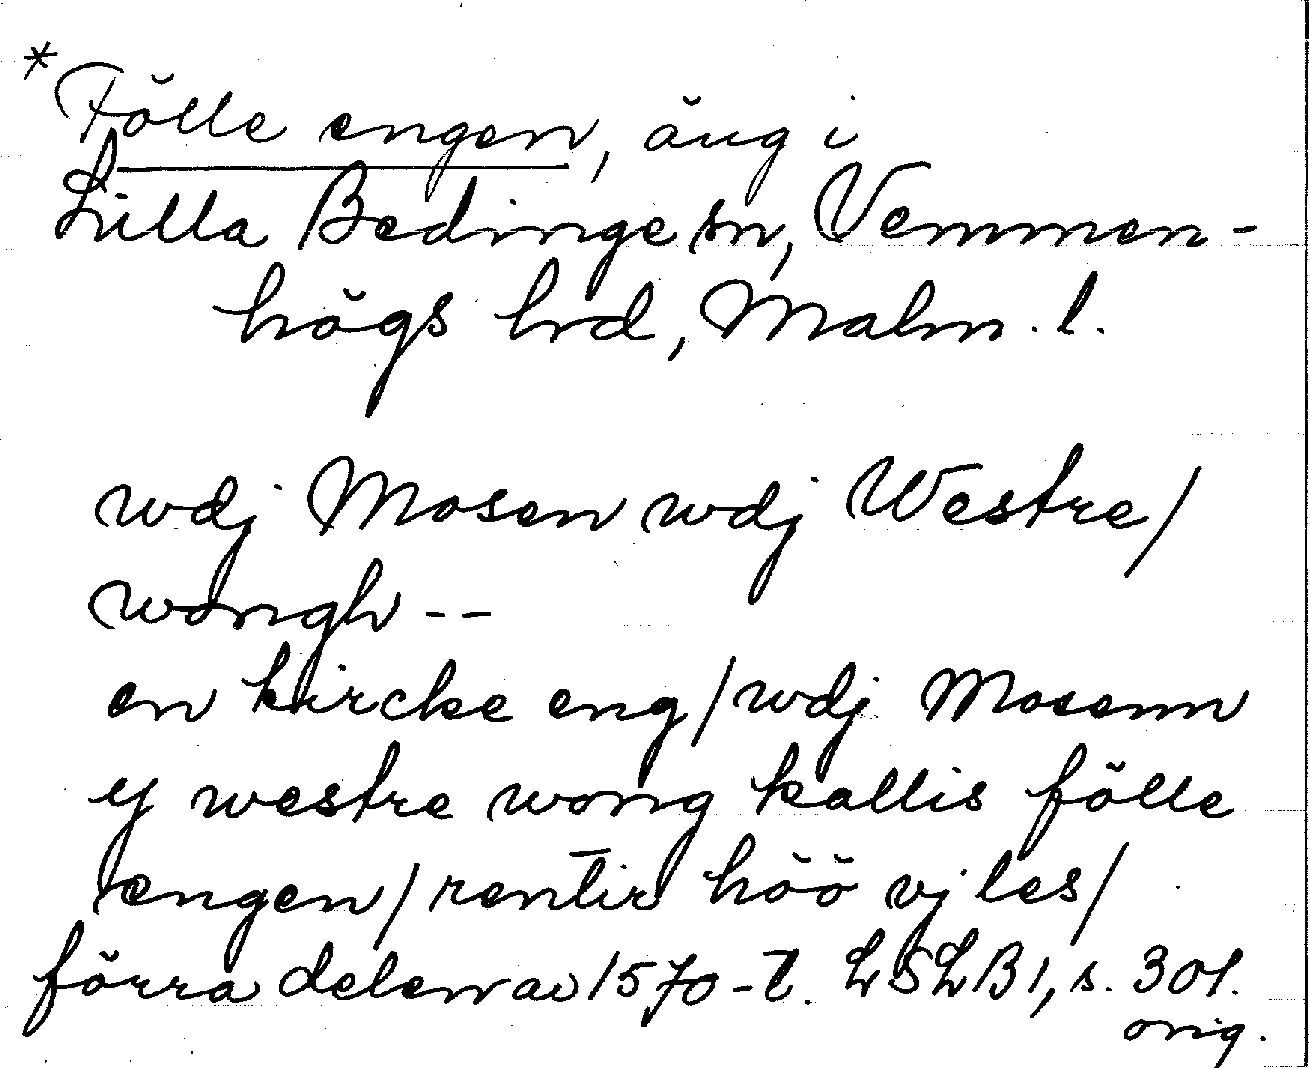 * Fölle engen, äng i
Lilla Bedinge sn, Vemmen-
högs hrd, Malm. l.
wdj Mosen wdj Westre/
wongh --
en kircke eng/wdj Mosenn
y westre wong kallis fölle
engen/rentir höö vj les/
förra delen av 1570-t. LSLB1, s. 301.
orig.